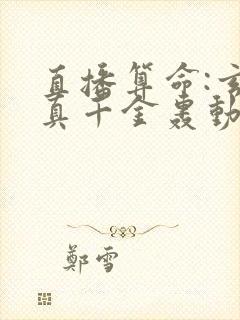 直播算命:玄
真千金轰動
鄭雪